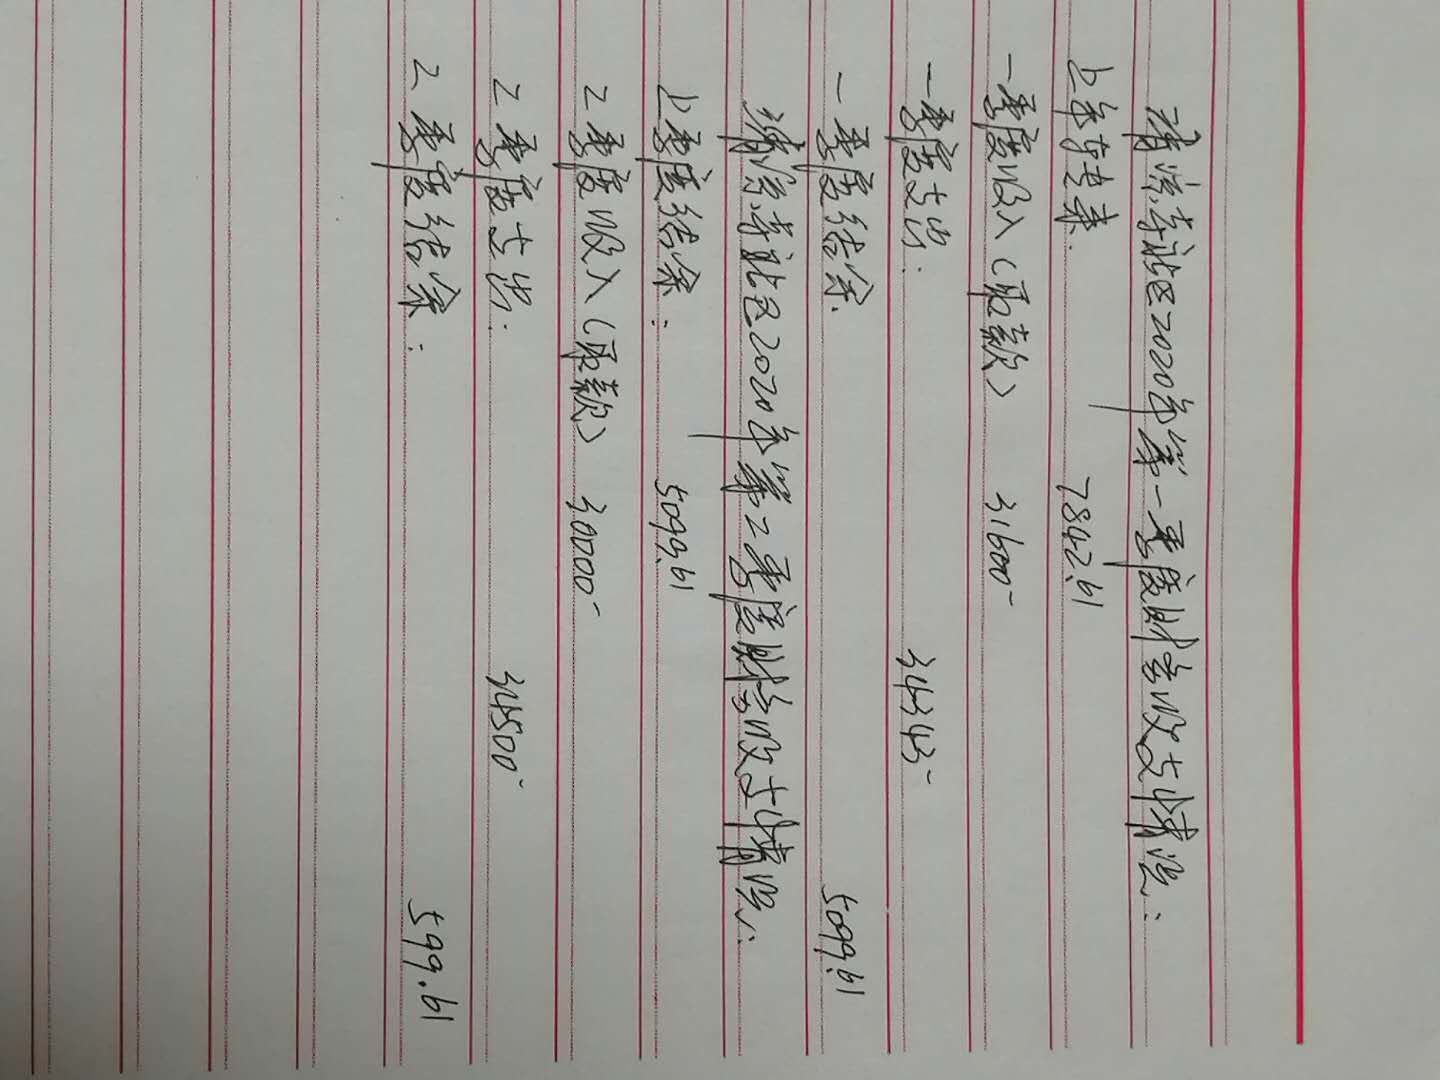 清凉寺社区2020年第一季度财务收支情况:
上年转来: 7842.61
一季度收入(取款) 31600-
一季度支出: 34343-
一季度结余: 5099.61
清凉寺社区2020年第2季度财务收支情况:
上季度结余: 5099.61
2季度收入(取款) 30000-
2季度支出: 34500-
2季度结余: 599.61